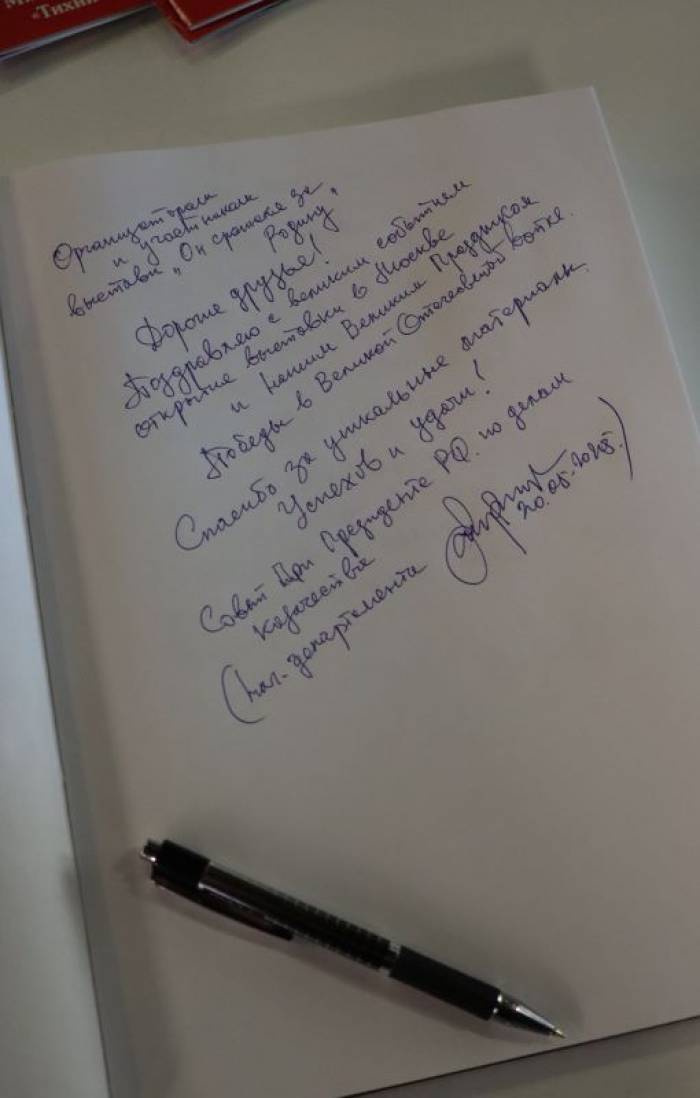 «Тихий
Организаторам
и участникам
выставки „Он сражался за
Родину"
Дорогие друзья!
Поздравляю с великим событием
открытие выставки в Москве
и нашим Великим Праздником
Победы в Великой Отечественной войне.
Спасибо за уникальные материалы.
Успехов и удачи!
Совет при Президенте РФ по делам
казачества
(нач. департамента
20.05.2025.)